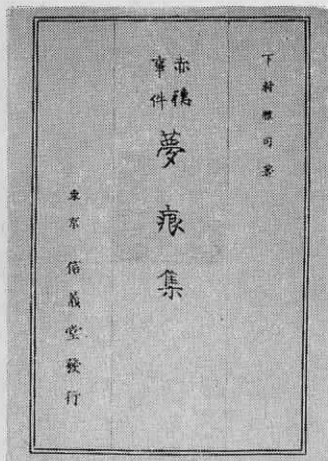 下村雅司著
赤穂事件
夢痕集
東京 信義堂發行